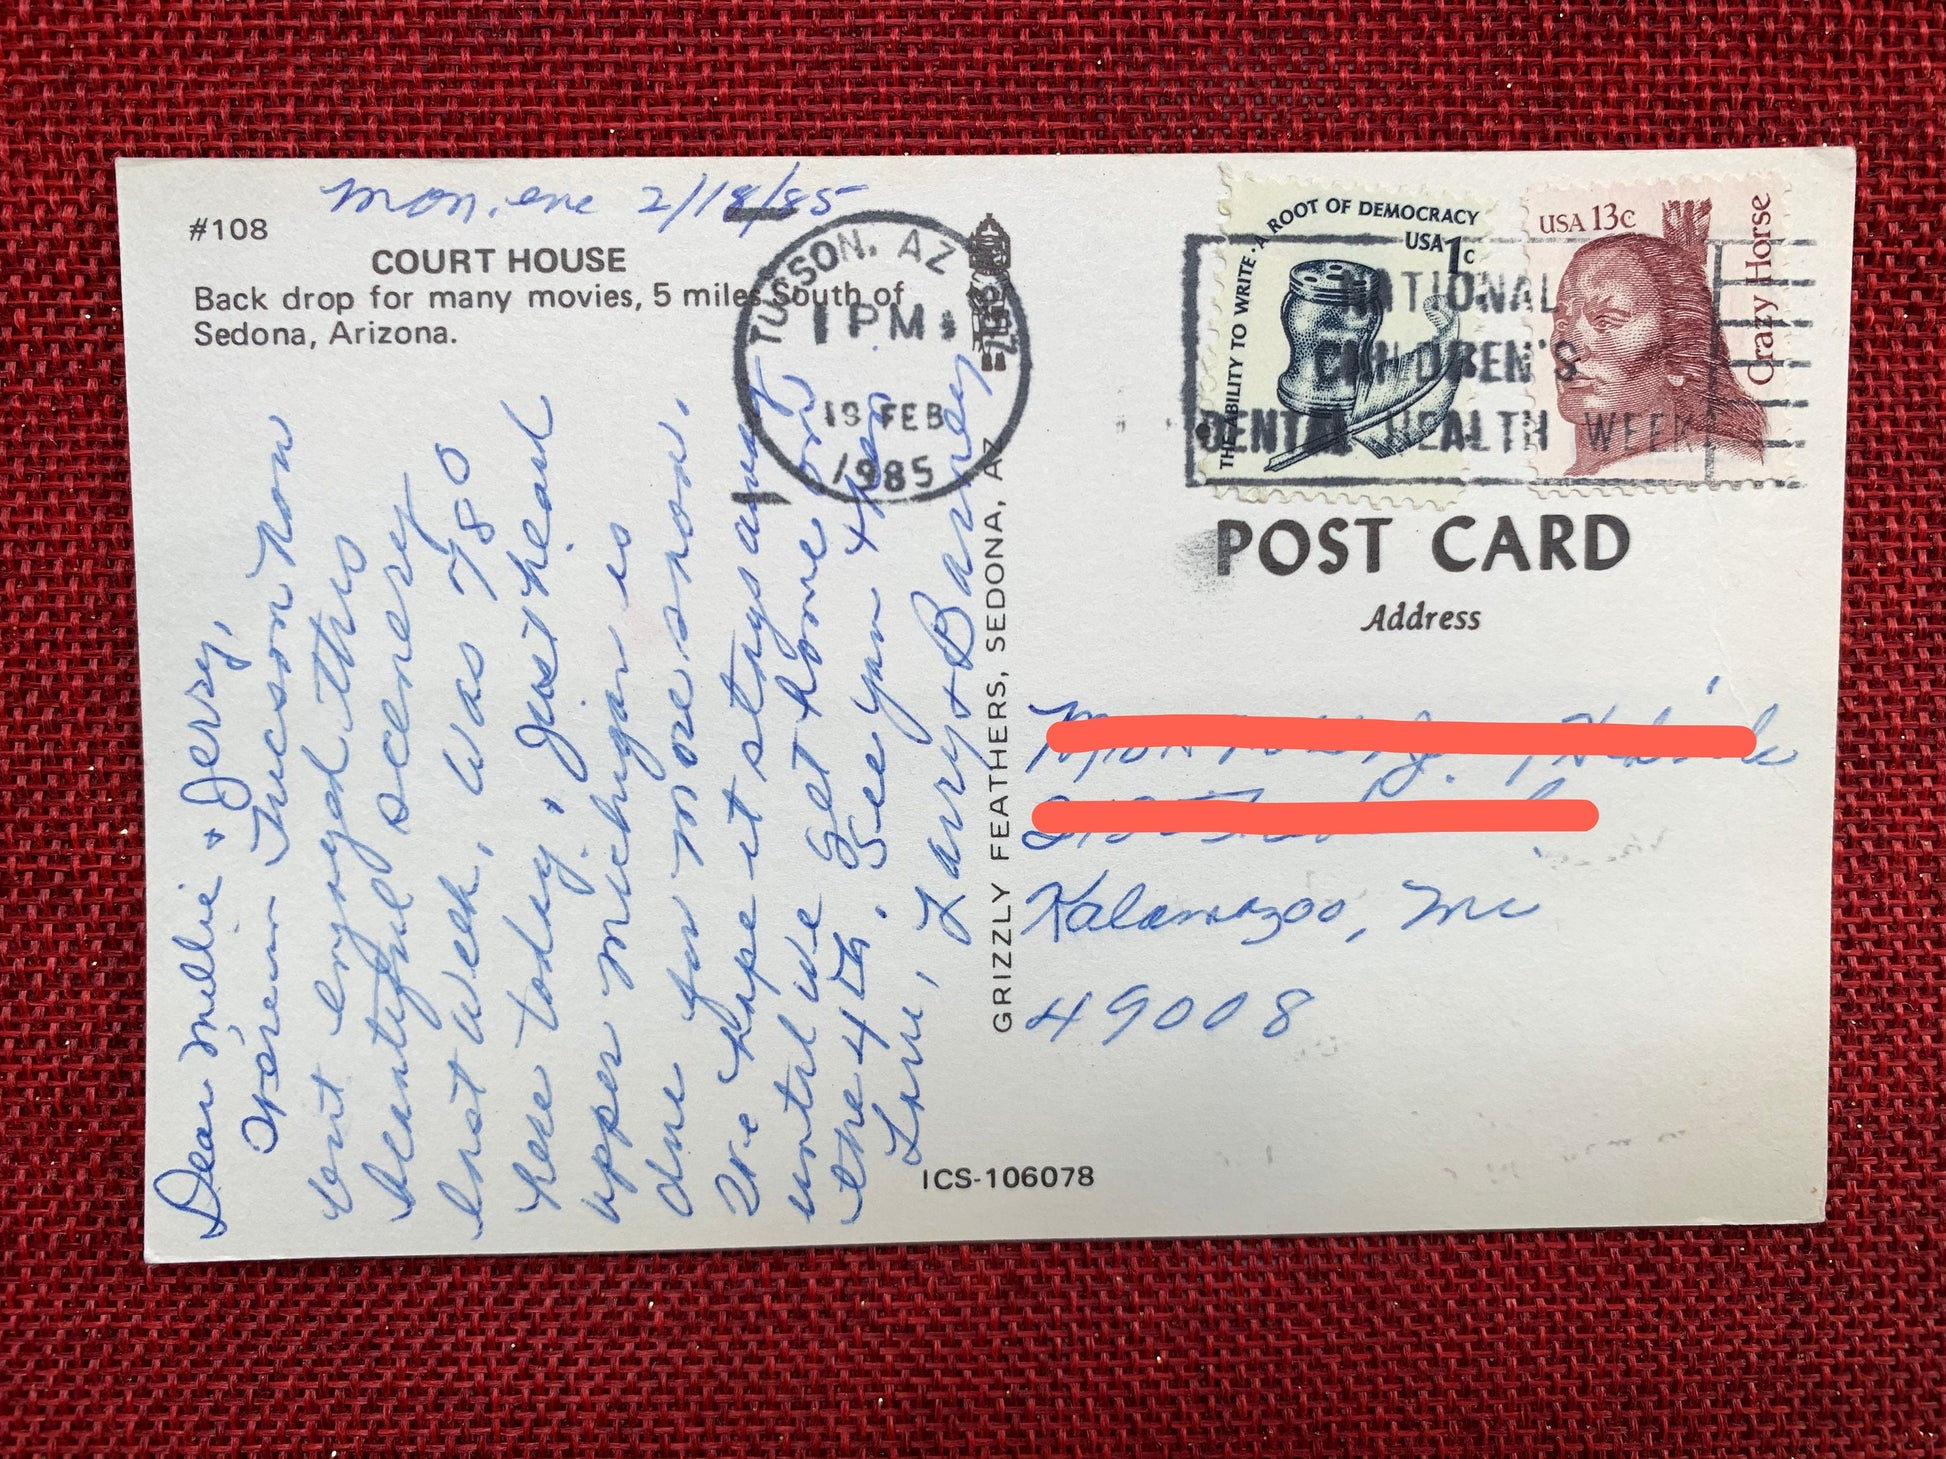 Mon. eve 2/18/85
#108
COURT HOUSE
Back drop for many movies, 5 miles South of
Sedona, Arizona.
Dear Millie + Jerry,
We're in Tucson now
but enjoyed this
beautiful scenery
last week. Was 78°
here today. Just heard
upper Michigan is
due for more snow.
We hope it stays away
until we get home on
the 4th. See you then
Love, Larry + Barney
GRIZZLY FEATHERS, SEDONA, AZ
ICS-106078
TUCSON, AZ
1 PM
19 FEB
1985
THE ABILITY TO WRITE · A ROOT OF DEMOCRACY
USA 1c
USA 13c
Crazy Horse
NATIONAL
CHILDREN'S
DENTAL HEALTH WEEK
POST CARD
Address
Kalamazoo, Mi
49008